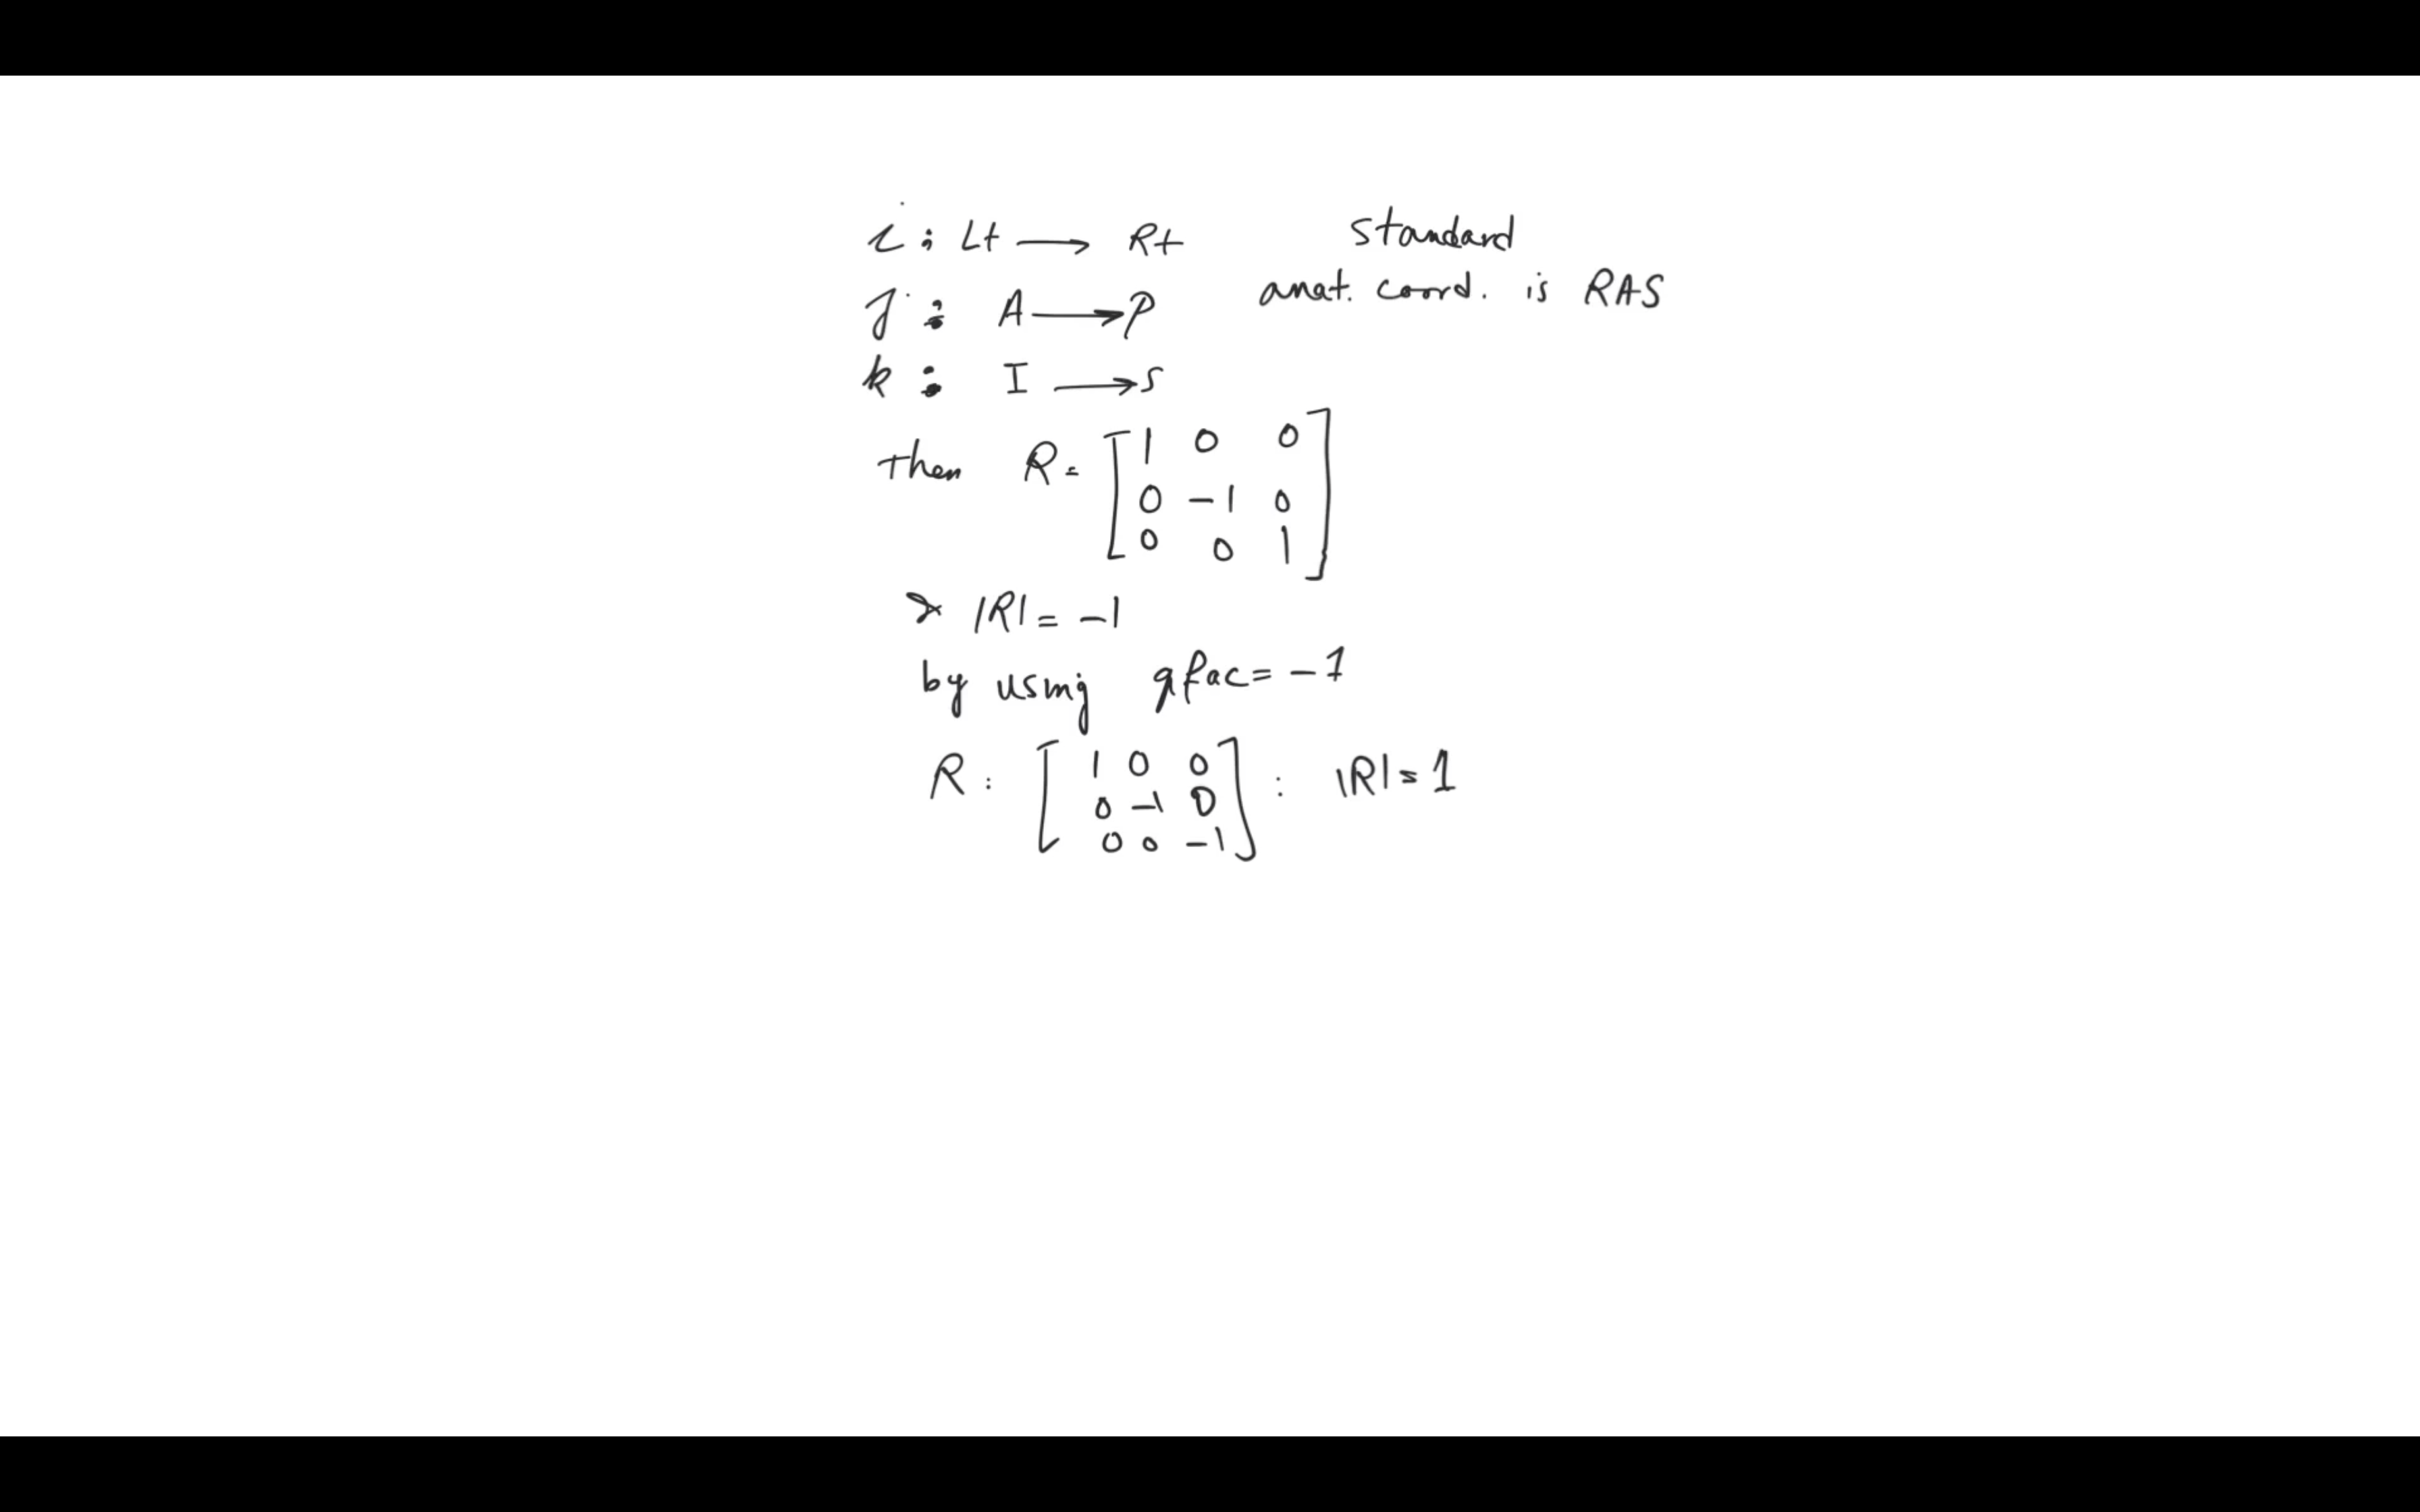 i : Lt → Rt standard
j : A → P anat. coord. is RAS
k : I → S
then R = [ 1 0 0
0 -1 0
0 0 1 ]
|R| = -1
by using qfac = -1
R : [ 1 0 0
0 -1 0
0 0 -1 ] : |R| = 1